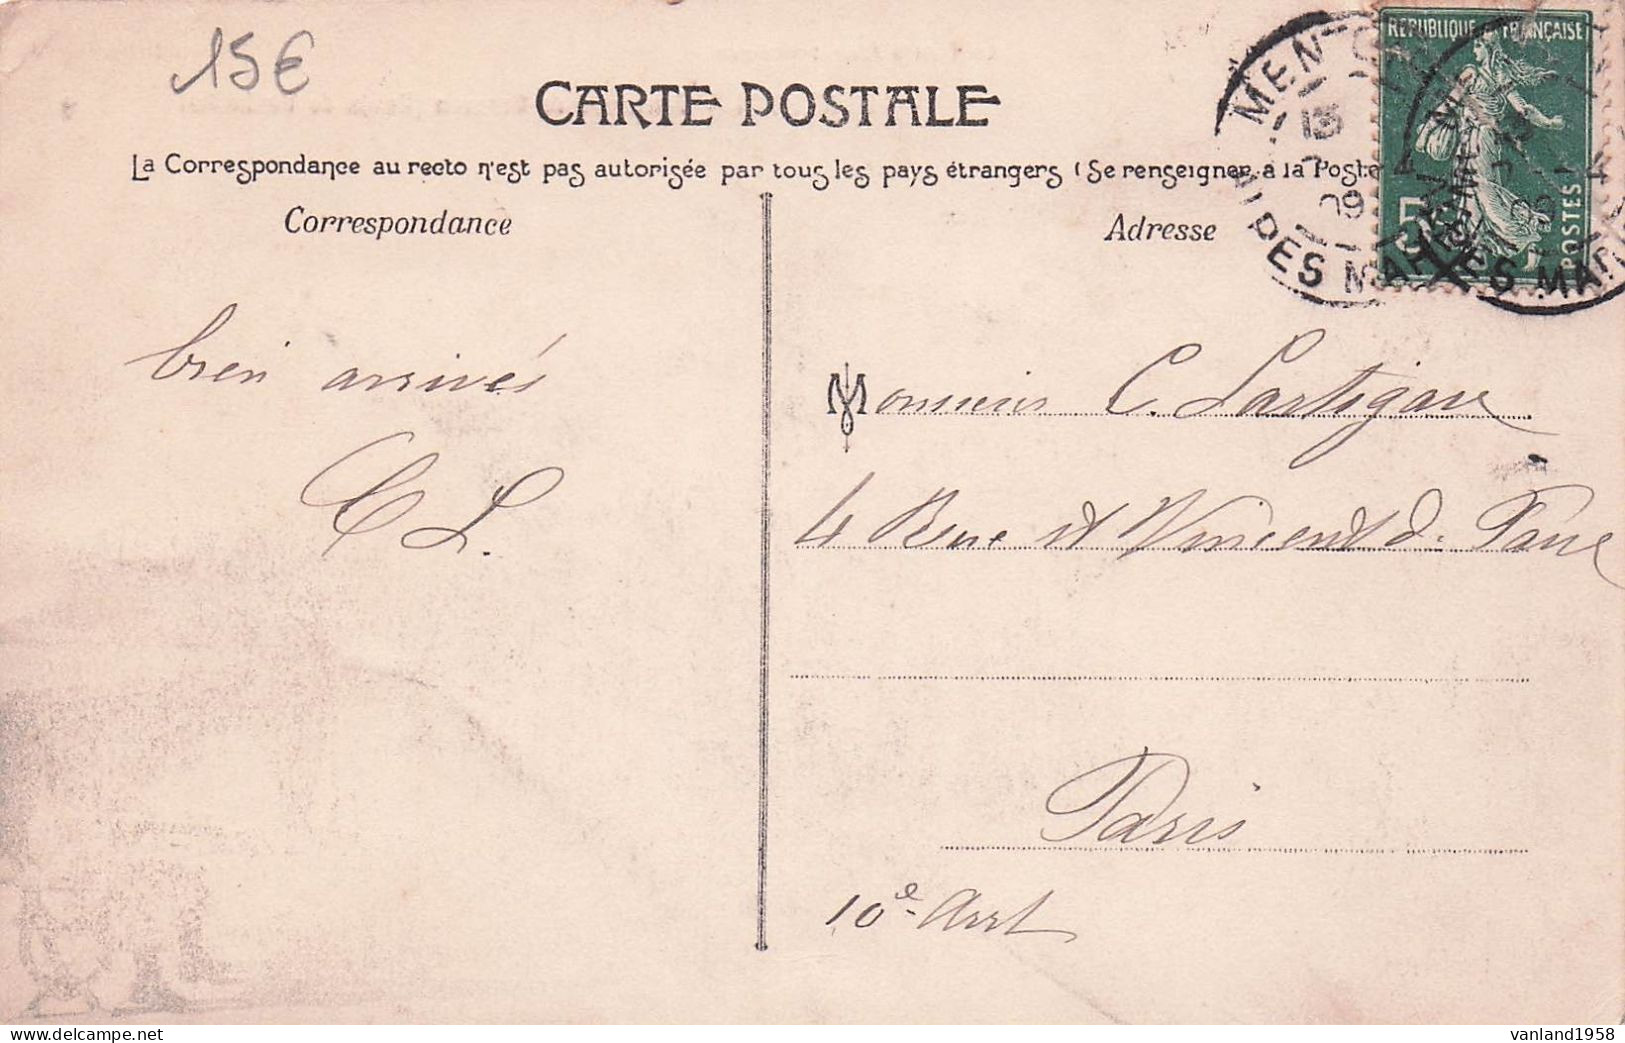 15€
CARTE POSTALE
La Correspondance au recto n'est pas autorisée par tous les pays étrangers (Se renseigner à la Poste
Correspondance
Adresse
REPUBLIQUE FRANÇAISE
5
POSTES
MENTON
ALPES MAR
bien arrivés
C L.
Monsieur C. Lartigau
4 Rue St Vincent d. Paul
Paris
10e Arrt
vanland1958
www.delcampe.net